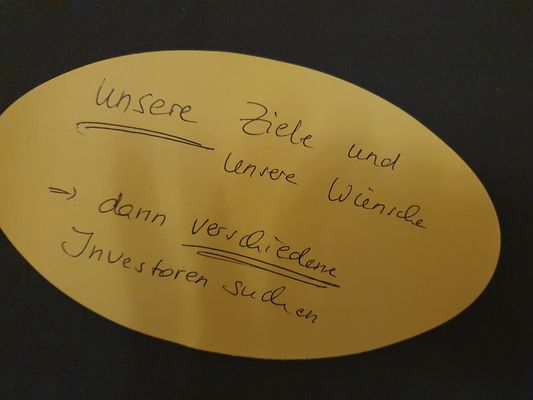 Unsere Ziele und
unsere Wünsche
⇒ dann verschiedene
Investoren suchen